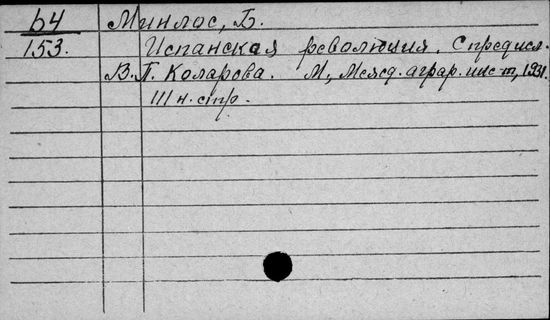 64 Минлос, Б.
153. Испанская революция. С предисл.
В.П. Коларова. М., Межд. аграр. инст, 1931.
111 н. стр.